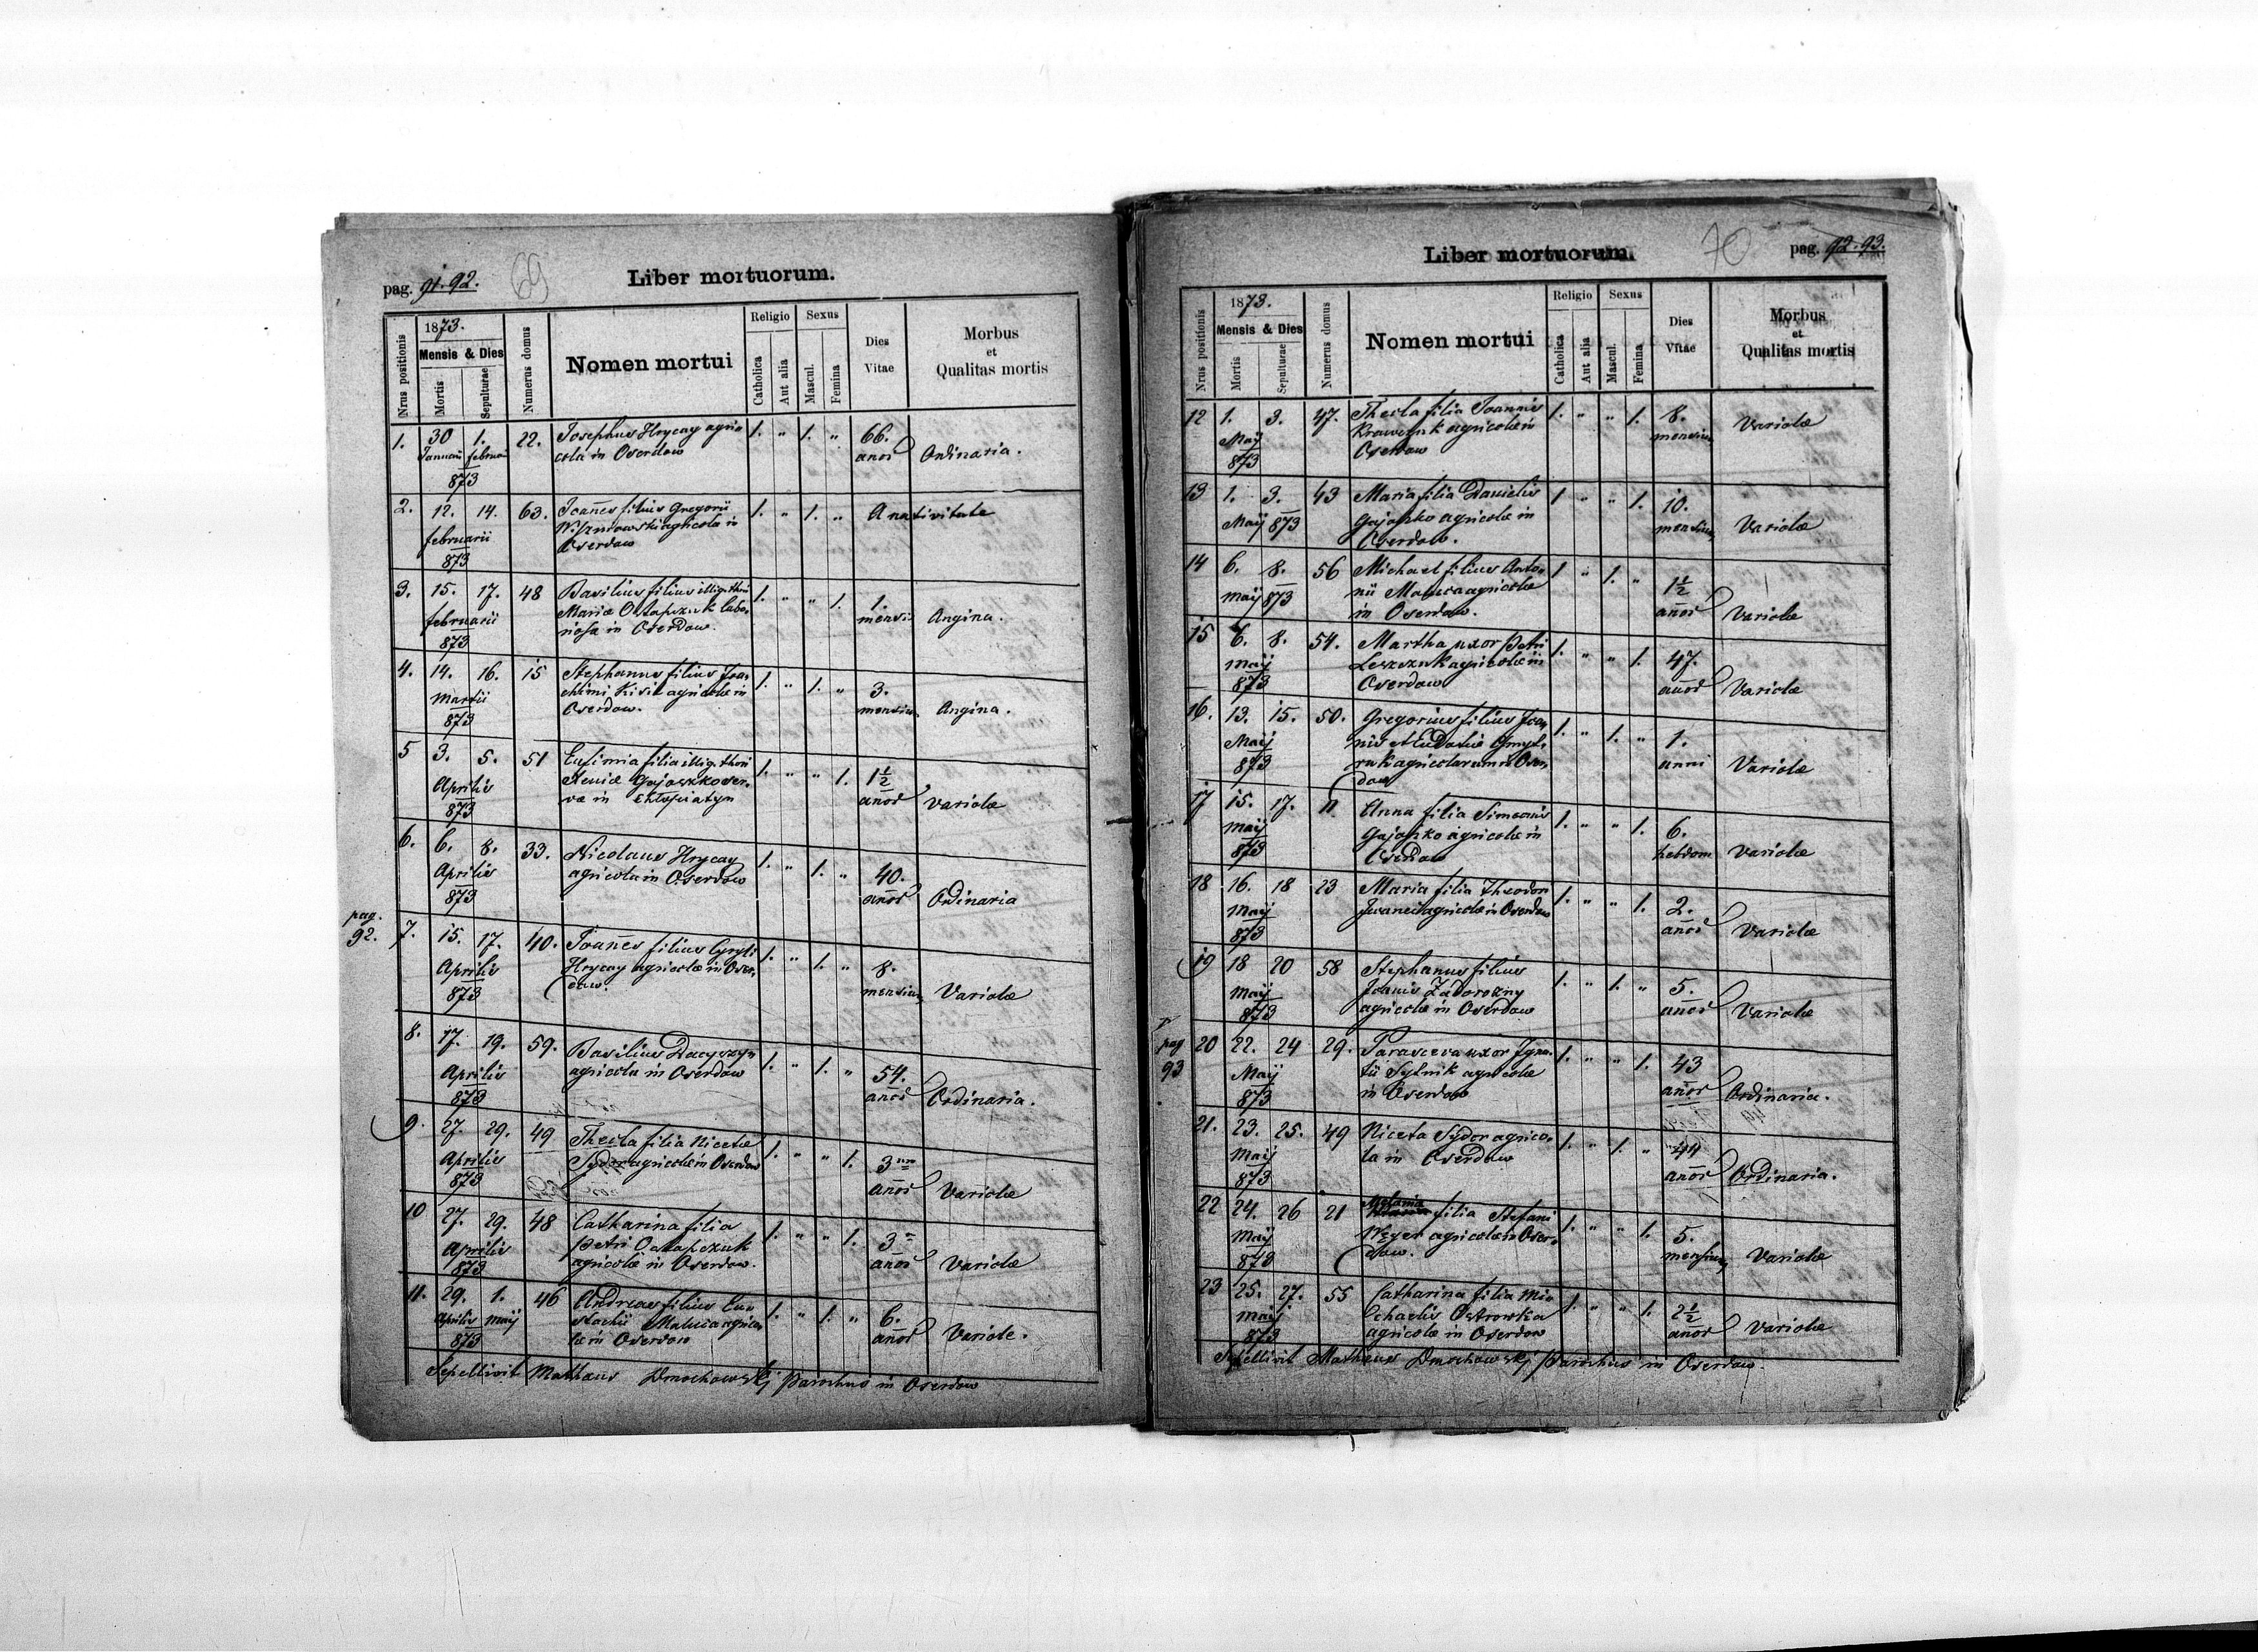 pag. 91.92.
69
Liber mortuorum.
Nrus positionis
1873.
Mensis & Dies
Mortis
Sepulturae
Numerus domus
Nomen mortui
Religio
Catholica
Aut alia
Sexus
Mascul.
Femina
Dies
Vitae
Morbus
et
Qualitas mortis
1. 30 1. 22. Josephus Hrycay agri 1. " 1. " 66.
Januarii februarii cola in Oserdow anor Ordinaria.
873
2. 12. 14. 63. Joannes filius Gregorii 1. " 1. " A nativitate
februarii agricolae in
873 Oserdow
3. 15. 17. 48 Basilius filius illig. thori 1. " " 1. 1.
februarii Mariae Ostapczuk labo mensis Angina.
873 riosa in Oserdow.
4. 14. 16. 15 Stephanus filius Joa 1. " 1. " 3.
Martii chimi Kisil agricolae in mensium Angina.
873 Oserdow.
5 3. 5. 51 Eufimia filia illig. thori 1. " " 1. 1½
Aprilis Xeniae Gajaszko ser anor Variolae
873 vae in Chłopiatyn
6. 6. 8. 33. Nicolaus Hrycay 1. " 1. " 40.
Aprilis agricola in Oserdow anor Ordinaria
873
pag.
92. 7. 15. 17. 40. Joannes filius Cyryli 1. " 1. " 8.
Aprilis Hrycay agricolae in Oser mensium Variolae
873 dow.
8. 17. 19. 59. Basilius Dacyszyn 1. " 1. " 54.
Aprilis agricola in Oserdow anor Ordinaria.
873
9. 27. 29. 49 Thecla filia Nicetae 1. " " 1. 3
Aprilis Sydor agricolae in Oserdow anor Variolae
873
10 27. 29. 48 Catharina filia 1. " " 1. 3
Aprilis Petri Ostapczuk anor Variolae
873 agricolae in Oserdow.
11. 29. 1. 46 Andreas filius Eu 1. " 1. " 6.
Aprilis Maij stachii Maluca agrico anor Variolae.
873 lae in Oserdow
Sepellivit Mathaeus Dmochowskj Parochus in Oserdow
Liber mortuorum.
70
pag. 92.93.
Nrus positionis
1873.
Mensis & Dies
Mortis
Sepulturae
Numerus domus
Nomen mortui
Religio
Catholica
Aut alia
Sexus
Mascul.
Femina
Dies
Vitae
Morbus
et
Qualitas mortis
12 1. 3. 47. Thecla filia Joannis 1. " " 1. 8.
Maij Krawczuk agricolae in mensium Variolae
873 Oserdow
13 1. 3. 43 Maria filia Danielis 1 " " 1. 10.
Maij 873 Gajaszko agricolae in mensium Variolae
Oserdow.
14 6. 8. 56 Michael filius Anto 1 " 1. " 1½
Maij 873 nii Maluca agricolae anor Variolae
in Oserdow.
15 6. 8. 54. Martha uxor Petri 1. " " 1. 47.
Maij Leszczuk agricolae in anor Variolae
873 Oserdow
16. 13. 15. 50. Gregorius filius Joan 1. " 1. " 1.
Maij nis et Eudociae anni Variolae
873 agricolarum in Oser
dow
17 15. 17. 11 Anna filia Simeonis 1. " " 1. 6.
Maij Gajaszko agricolae in hebdom Variolae
873 Oserdow
18 16. 18 23 Maria filia Theodori 1. " " 1. 2.
Maij agricolae in Oserdow anor Variolae
873
19 18 20 58 Stephanus filius 1. " 1. " 5.
Maij Joanis Zadorozny anor Variolae
873 agricolae in Oserdow
pag
93 20 22. 24 29. Parasceva uxor Igna 1. " " 1. 43
Maij tii Sytnik agricolae anor Ordinaria.
873 in Oserdow
21. 23. 25. 49 Niceta Sydor agrico 1. " 1. " 44
Maij la in Oserdow anor Ordinaria.
873
22 24. 26 21 Melania filia Stefani 1. " " 1. 5.
Maij Węger agricolae in Oser mensium Variolae
873 dow.
23 25. 27. 55 Catharina filia Mi 1. " " 1. 2½
Maij chaelis Ostrowka anor Variolae
873 agricolae in Oserdow
Sepellivit Mathaeus Dmochowskj Parochus in Oserdow.